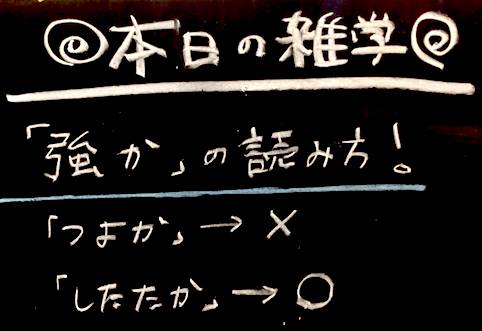 本日の雑学
「強か」の読み方!
「つよか」→×
「したたか」→○